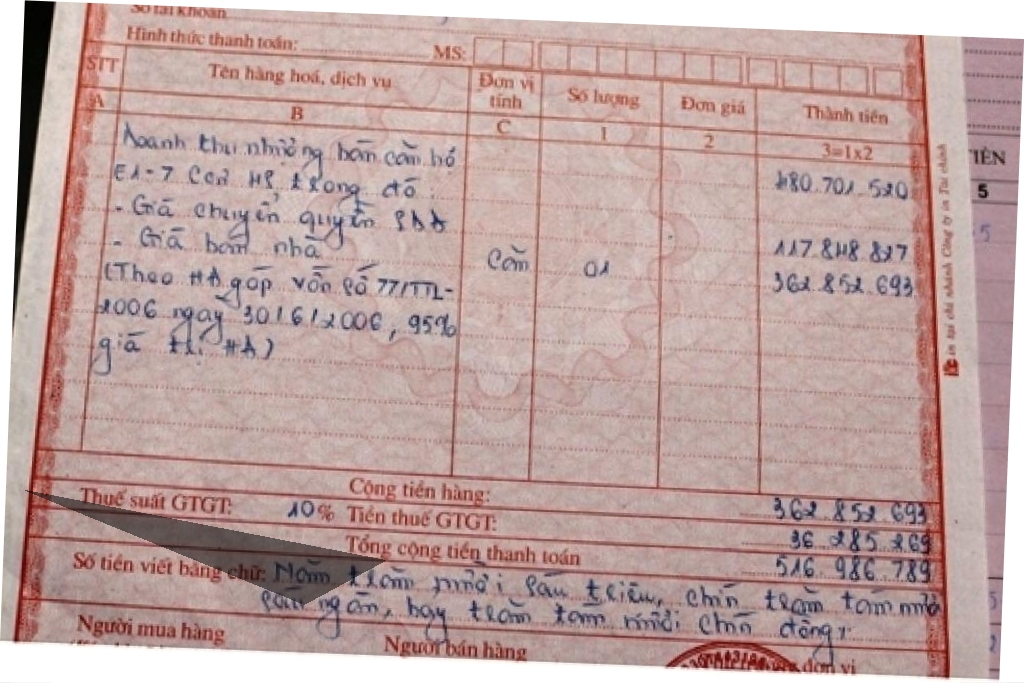 Số tài khoản
Hình thức thanh toán: MS:
STT Tên hàng hoá, dịch vụ Đơn vị tính Số lượng Đơn giá Thành tiền
A B C 1 2 3=1x2
Doanh thu nhượng bán căn hộ 480.701.520
E1-7 CCN HS, trong đó:
- Giá chuyển quyền SDĐ 117.848.827
- Giá bán nhà Căn 01 362.852.693
(Theo HĐ góp vốn số 77/TTL-
2006 ngày 30/6/2006, 95%
giá trị HĐ)
Cộng tiền hàng: 362.852.693
Thuế suất GTGT: 10% Tiền thuế GTGT: 36.285.269
Tổng cộng tiền thanh toán 516.986.789
Số tiền viết bằng chữ: Năm trăm mười sáu triệu, chín trăm tám mươi
sáu ngàn, bảy trăm tám mươi chín đồng
Người mua hàng Người bán hàng đơn vị
in tại chi nhánh Công ty in Tài chính
TIỀN
5